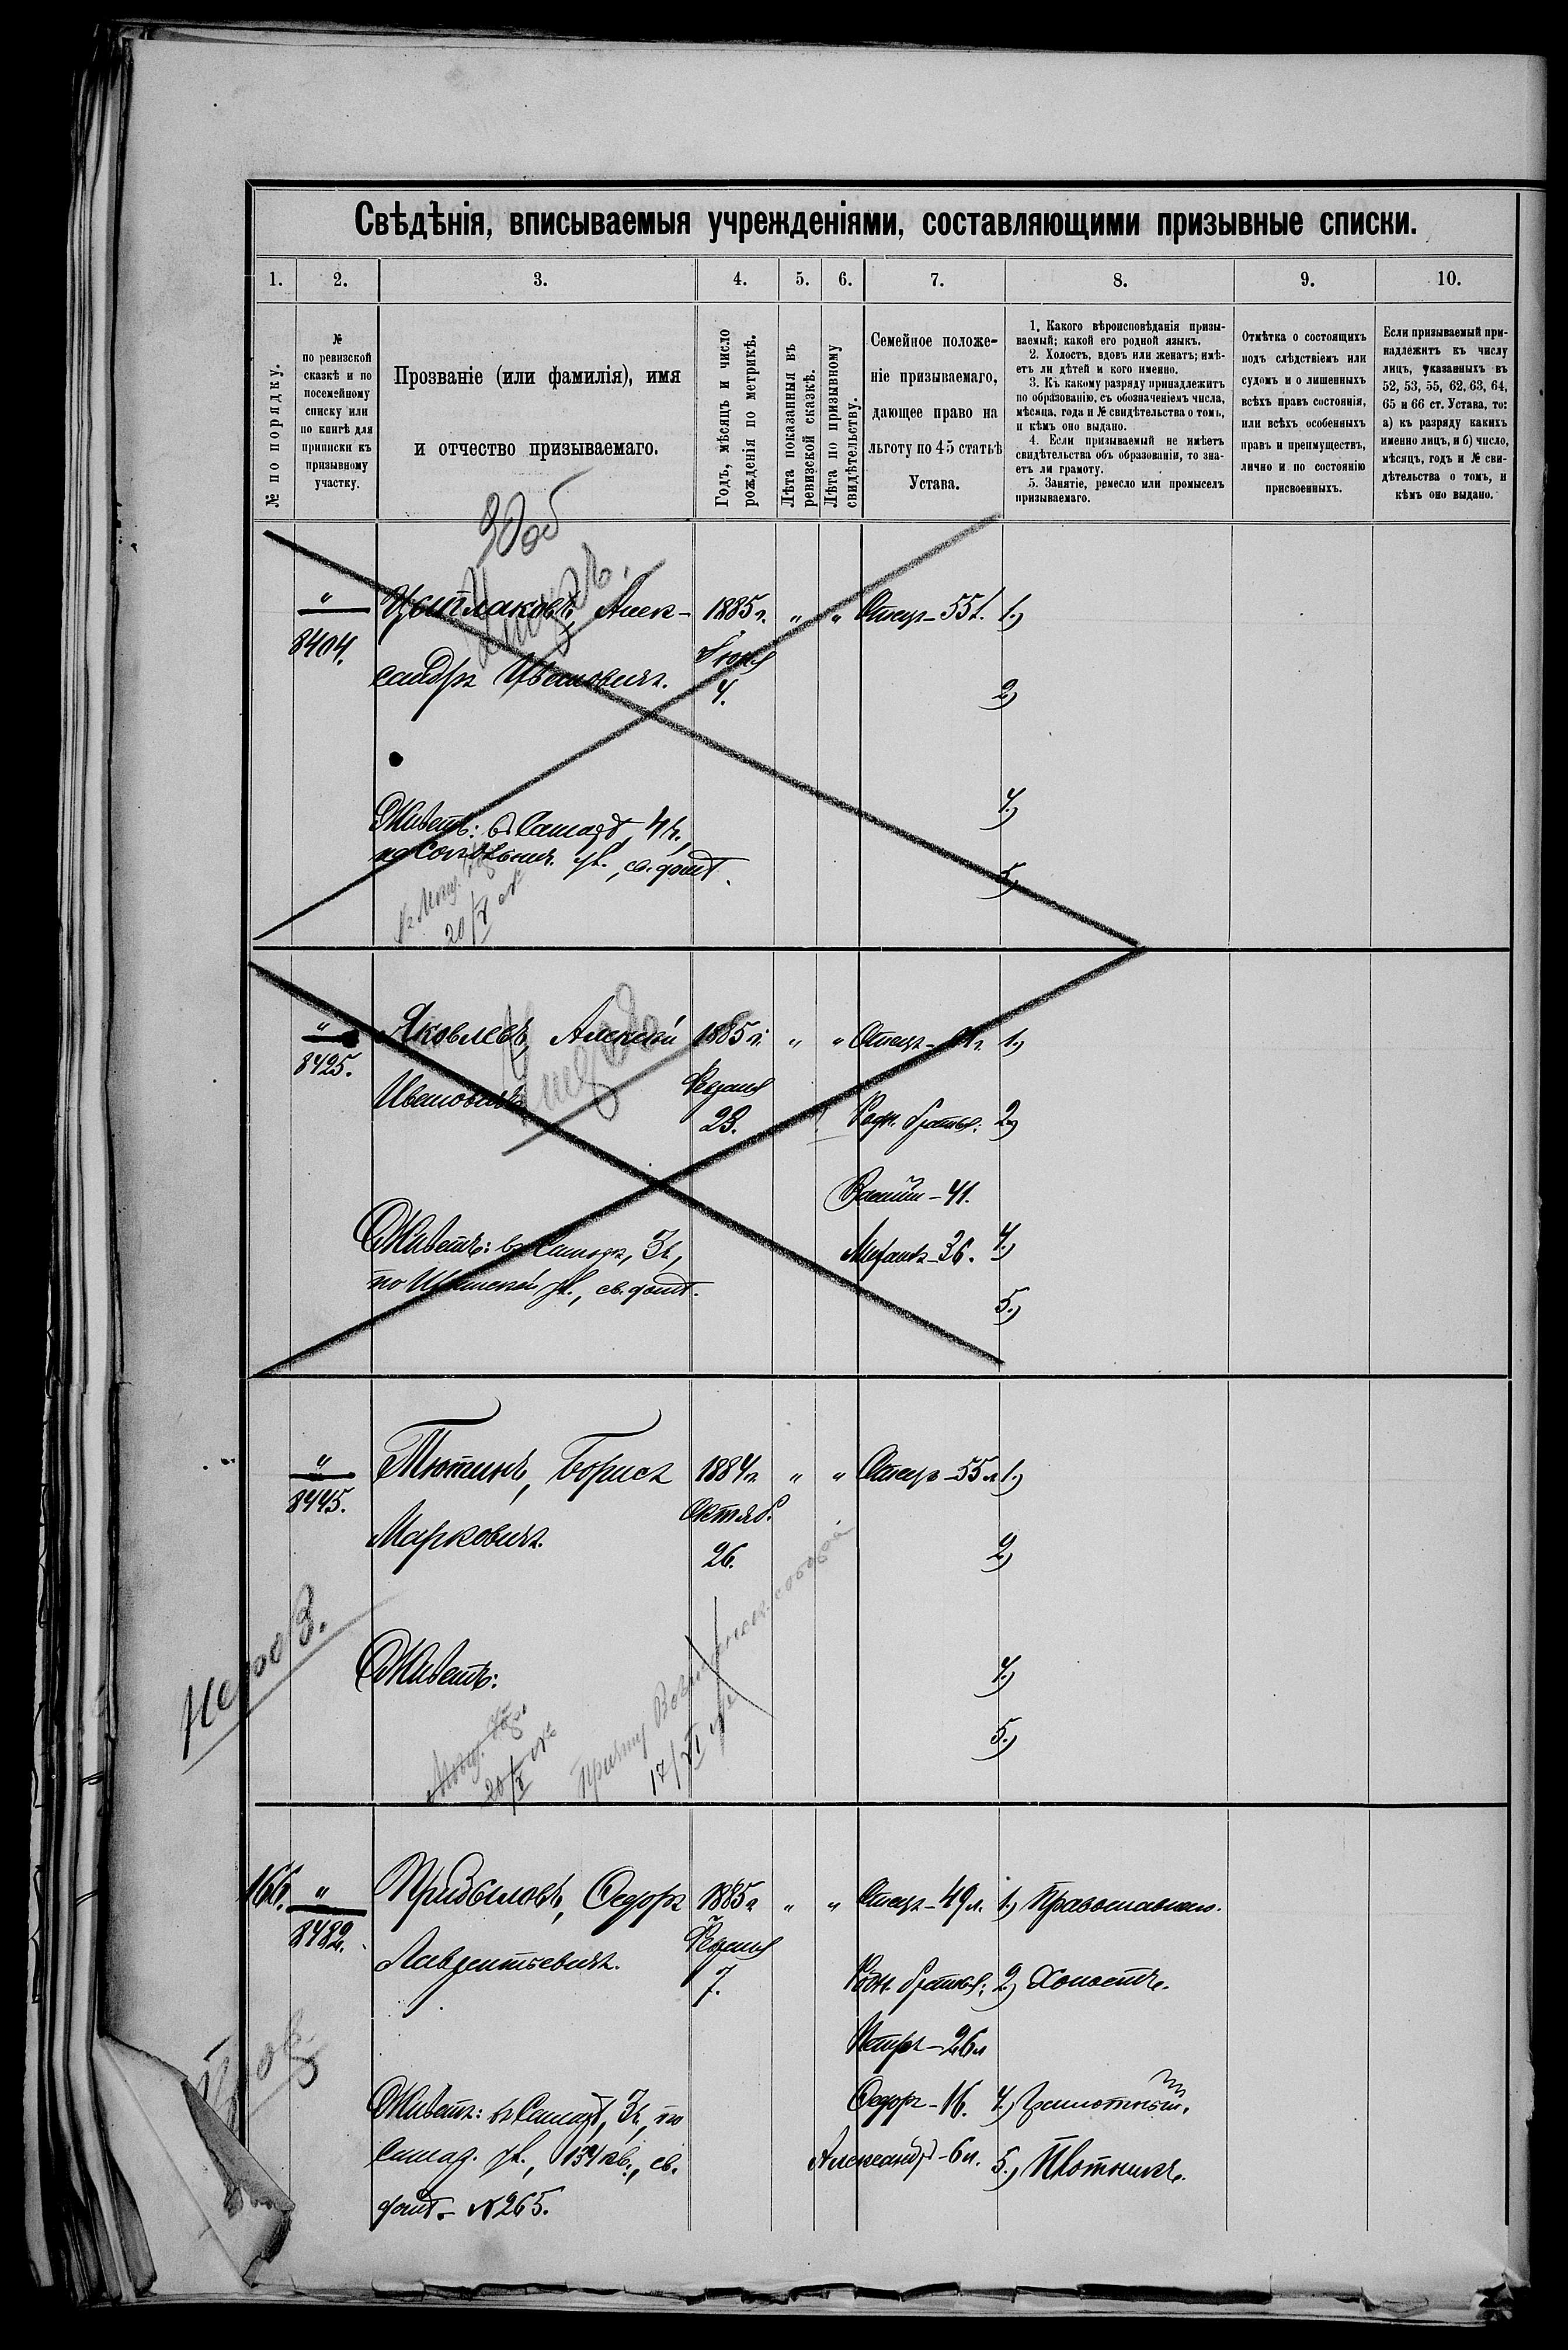 Свѣдѣнія, вписываемыя учрежденіями, составляющими призывные списки.
1. 2. 3. 4. 5. 6. 7. 8. 9. 10.
№ по порядку.
№
по ревизской
сказкѣ и по
посемейному
списку или
по книгѣ для
приписки къ
призывному
участку.
Прозваніе (или фамилія), имя
и отчество призываемаго.
Годъ, мѣсяцъ и число
рожденія по метрикѣ.
Лѣта показанныя въ
ревизской сказкѣ.
Лѣта по призывному
свидѣтельству.
Семейное положе-
ніе призываемаго,
дающее право на
льготу по 45 статьѣ
Устава.
1. Какого вѣроисповѣданія призы-
ваемый; какой его родной языкъ.
2. Холостъ, вдовъ или женатъ; имѣ-
етъ ли дѣтей и кого именно.
3. Къ какому разряду принадлежитъ
по образованію, съ обозначеніемъ числа,
мѣсяца, года и № свидѣтельства о томъ,
и кѣмъ оно выдано.
4. Если призываемый не имѣетъ
свидѣтельства объ образованіи, то зна-
етъ ли грамоту.
5. Занятіе, ремесло или промыселъ
призываемаго.
Отмѣтка о состоящихъ
подъ слѣдствіемъ или
судомъ и о лишенныхъ
всѣхъ правъ состоянія,
или всѣхъ особенныхъ
правъ и преимуществъ,
лично и по состоянію
присвоенныхъ.
Если призываемый при-
надлежитъ къ числу
лицъ, указанныхъ въ
52, 53, 55, 62, 63, 64,
65 и 66 ст. Устава, то:
а) къ разряду какихъ
именно лицъ, и б) число,
мѣсяцъ, годъ и № сви-
дѣтельства о томъ, и
кѣмъ оно выдано.
" Цыплаковъ, Алек- 1885 г. " " Отецъ - 55 л. 1.)
8404.
сандръ Ивановичъ. Іюня
4. 2.)
4.)
Живетъ: въ Самарѣ, 4 ч.,
ул., св. домъ. 5.)
20/X
" Яковлевъ, Алексѣй 1885 г. " " Отецъ - 1.)
8425.
Ивановичъ 23. Родн. братья: 2.)
Василій - 41.
Живетъ: въ Самарѣ, 3 ч., 36. 4.)
по ул., св. домъ. 5.)
" Тютинъ, Борисъ 1884 г. " " Отецъ - 55 л. 1.)
8445. Октяб.
Марковичъ. 26. 2.)
Живетъ: 4.)
20/X 17/XI 5.)
166. " Прибыловъ, Ѳедоръ 1885 г. " " Отецъ - 49 л. 1.) Православнаго.
8482.
Лаврентьевичъ. 7. Родн. братья: 2.) Холостъ.
Петръ - 26 л.
Живетъ: въ Самарѣ, 3 ч., по Ѳедоръ - 16. 4.) Грамотный.
Самар. ул., 134 кв., св. Александръ - 6 л. 5.) Плотникъ.
домъ - № 265.